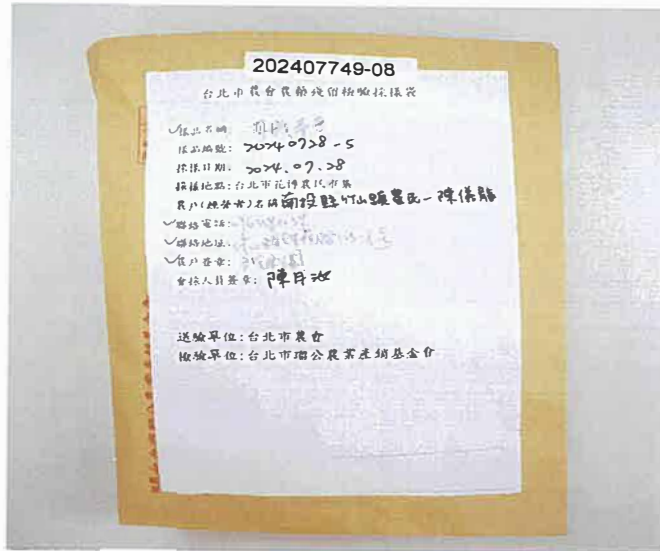 202407749-08
台北市農會農藥殘留檢驗採樣袋
✓樣品名稱:
樣品編號: 20240728-5
採樣日期: 2024.07.28
採樣地點:台北市花博農民市集
農戶(經營者)名稱 南投縣竹山鎮農民-陳
✓聯絡電話:
✓聯絡地址:
✓農戶簽章:
會採人員簽章: 陳月
送驗單位:台北市農會
檢驗單位:台北市瑠公農業產銷基金會